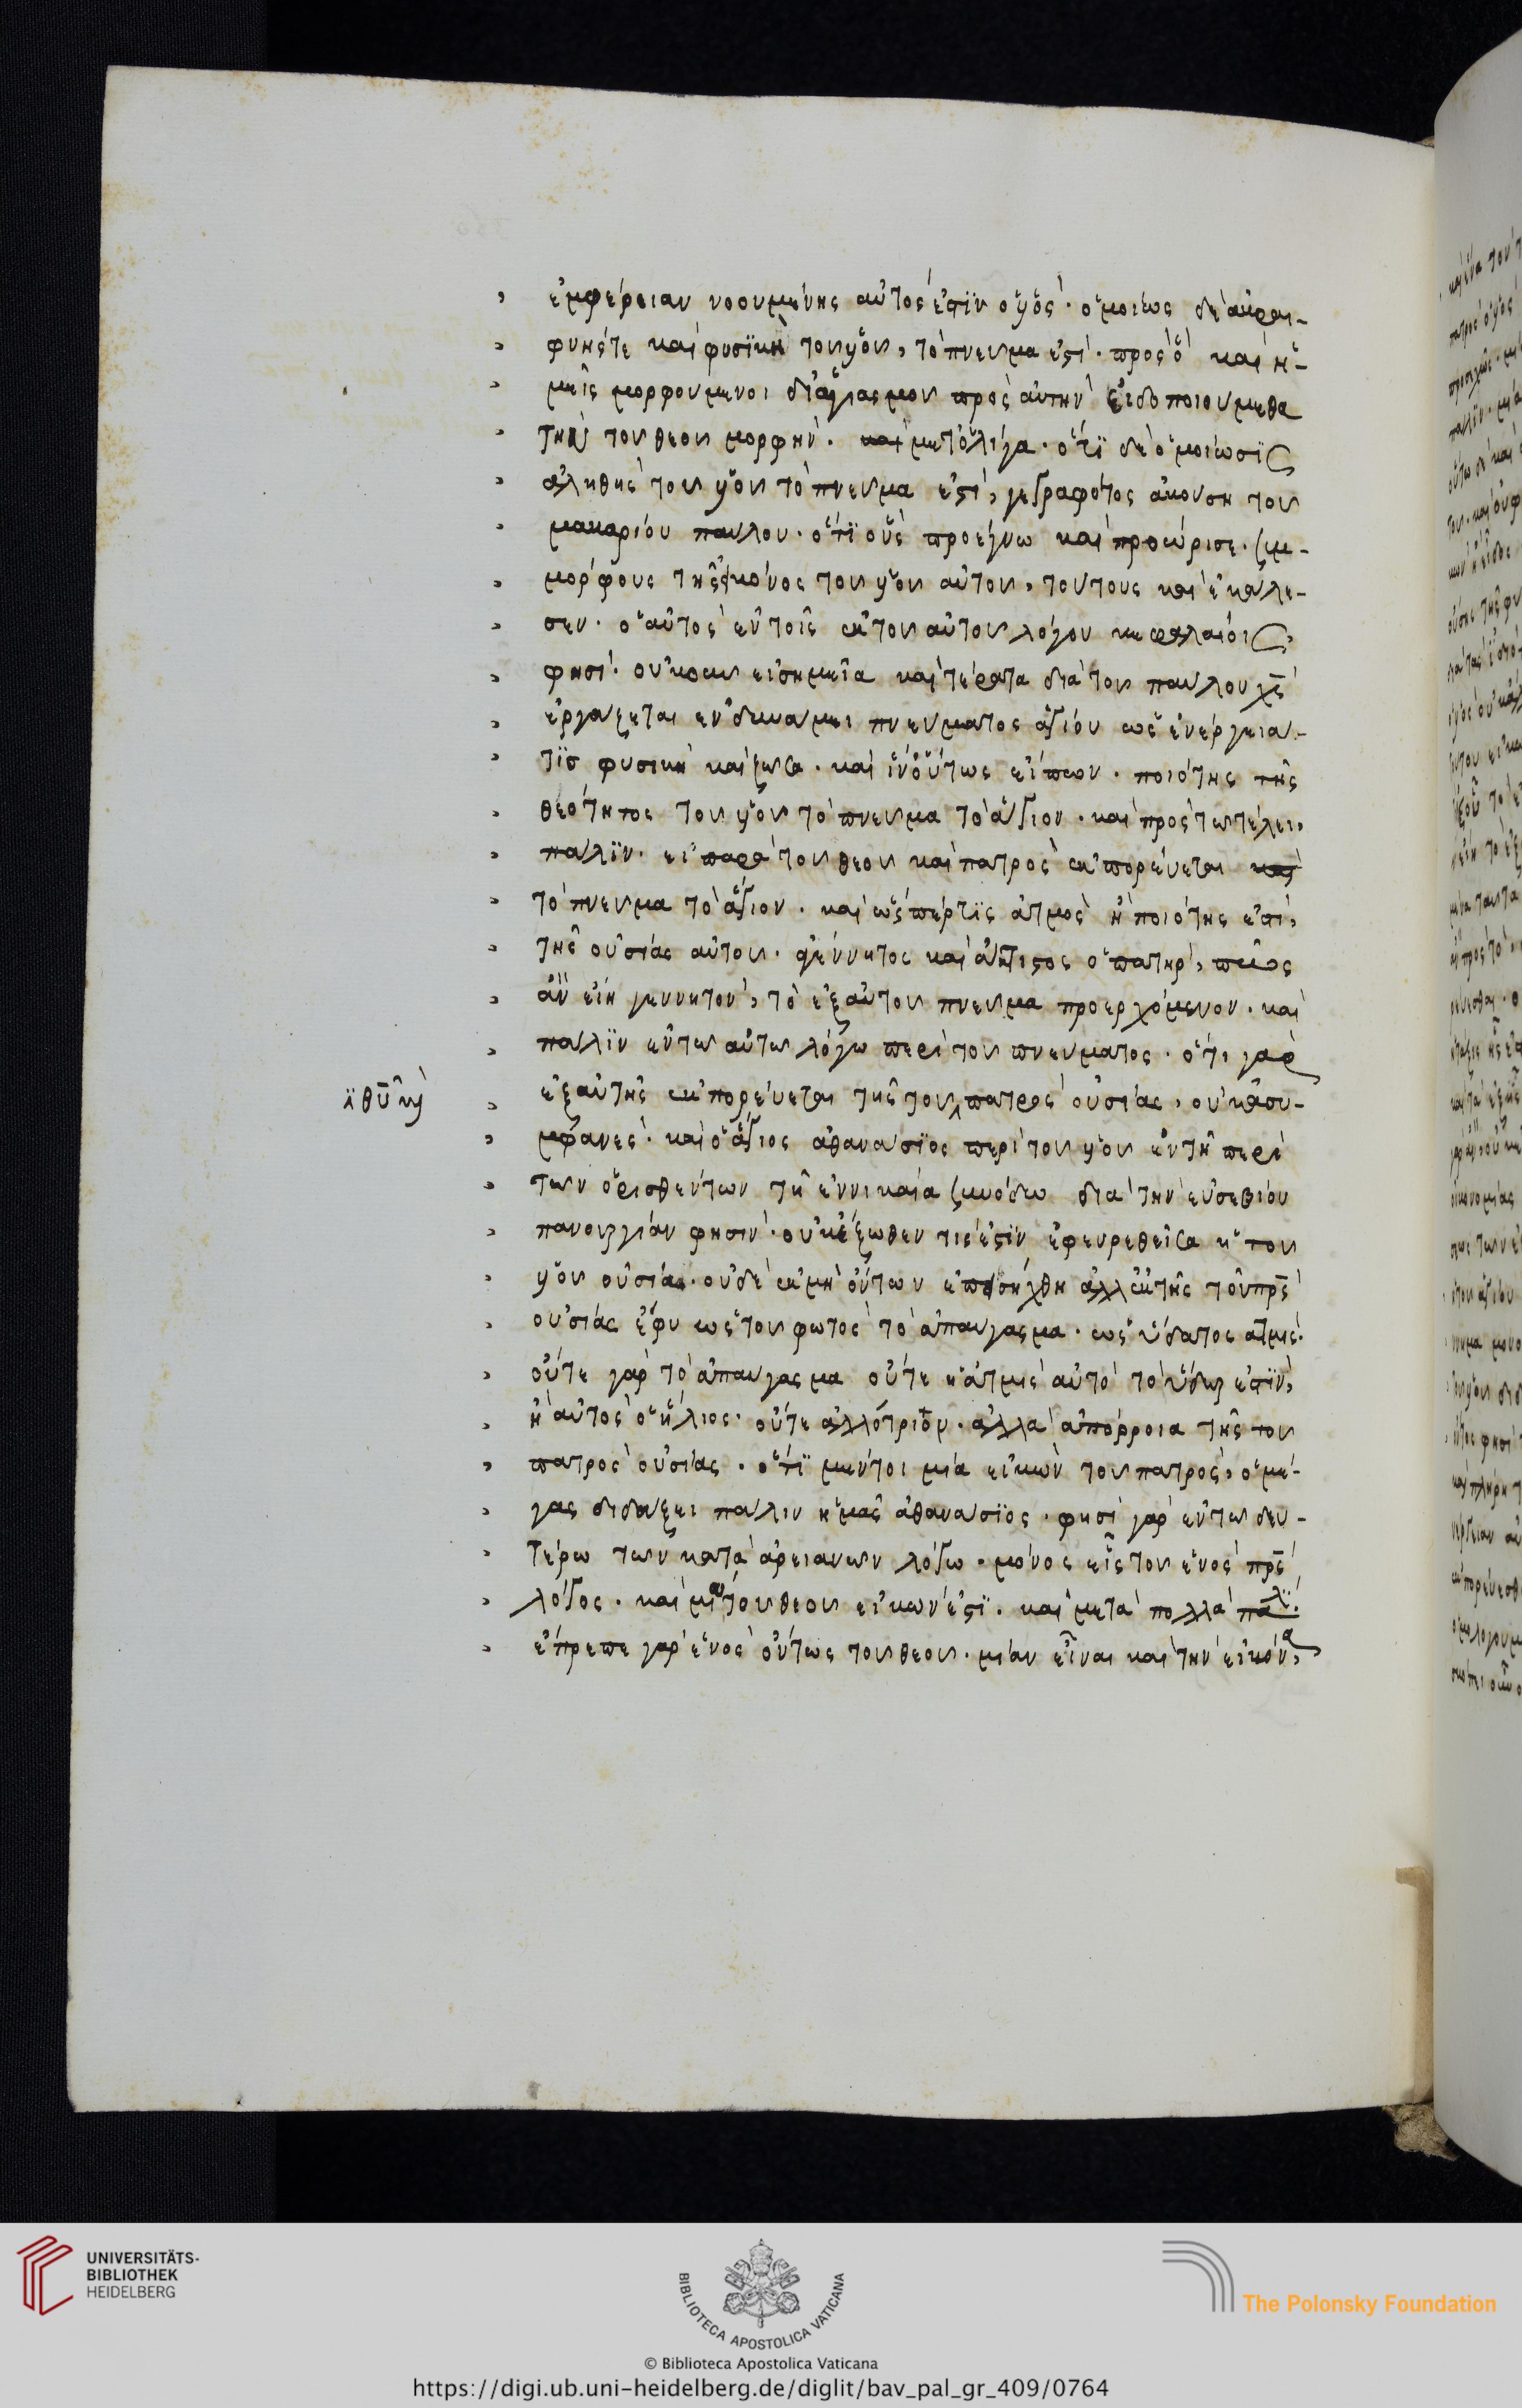 ἐμφέρειαν νοουμένης αὐτός ἐστϊν ὁ υἱὸς· ὁμοίως δὲ ἀκραι-
φνής τε καὶ φυσϊκὴ τοῦ υἱοῦ, τὸ πνεῦμα ἐστὶ· πρὸς ὃ καὶ ἡ-
μεῖς μορφούμενοι δι ἁγιασμοῦ πρὸς αὐτὴν εἰδοποιούμεθα
τὴν τοῦ θεοῦ μορφήν. καὶ μετ ὀλίγα· ὅτϊ δὲ ὁμοίωσϊς
ἀληθὴς τοῦ υἱοῦ τὸ πνεῦμα ἐστὶ, γεγραφότος ἄκουση τοῦ
μακαρίου παύλου· ὅτϊ οὓς προέγνω καὶ προώρισε· συμ-
μόρφους τῆς εἰκόνος τοῦ υἱοῦ αὐτοῦ, τούτους καὶ ἐκάλε-
σεν· ὁ αὐτὸς ἐν τοῖς ἐκ τοῦ αὐτοῦ λόγου κεφαλαίοις,
φησὶ· οὐκοῦν εἰ σημεῖα καὶ τέρατα διὰ τοῦ παύλου χς
ἐργάζεται ἐν δυνάμει πνεύματος ἁγίου ὡς ἐνέργεια
τϊσ φυσικὴ καὶ ζῶσα· καὶ ἵν οὕτως εἴπων· ποιότης τῆς
θεότητος τοῦ υἱοῦ τὸ πνεῦμα τὸ ἅγιον· καὶ πρὸς τῶ τέλει,
πάλϊν· εἰ παρὰ τοῦ θεοῦ καὶ πατρὸς ἐκπορεύεται καὶ
τὸ πνεῦμα τὸ ἅγιον· καὶ ὥσπέρ τϊς ἀτμὸς ἢ ποιότης ἐστὶ,
τῆς οὐσίας αὐτοῦ· ἀγέννητος καὶ ἄκτιστος ὁ πατὴρ, πῶς
ἂν εἴη γεννητὸν, τὸ ἐξ αὐτοῦ πνεῦμα προερχόμενον· καὶ
πάλϊν ἐν τῶ αὐτῶ λόγω περὶ τοῦ πνεύματος· ὅτι γὰρ
ἐξ αὐτῆς ἐκπορεύεται τῆς τοῦ πατρὸς οὐσίας, οὐκ ἀσυ-
μφανὲς· καὶ ὁ ἅγιος ἀθανάσϊος περὶ τοῦ υἱοῦ ἐν τῆ περὶ
τῶν ὁρισθέντων τῆ ἐν νικαία συνόδω διὰ τὴν εὐσεβίου
πανουργίαν φησὶν· οὐκ ἔξωθεν τίς ἐστϊν ἐφευρεθεῖσα ἡ τοῦ
υἱοῦ οὐσία· οὐδὲ ἐκ μὴ ὄντων ἐπεισήχθη ἀλλ ἐκ τῆς τοῦ πρς
οὐσίας ἔφυ ὡς τοῦ φωτὸς τὸ ἀπαύγασμα· ὡς ὕδατος ἀτμὶς·
οὔτε γὰρ τὸ ἀπαύγασμα οὔτε ἡ ἀτμὶς αὐτὸ τὸ ὕδωρ ἐστϊν,
ἢ αὐτὸς ὁ ἥλιος· οὔτε ἀλλότριον· ἀλλὰ ἀπόρροια τῆς τοῦ
πατρὸς οὐσίας· ὅτϊ μέντοι μία εἰκὼν τοῦ πατρὸς, ὁ μέ-
γας διδάξει πάλιν ἡμᾶς ἀθανάσϊος· φησὶ γὰρ ἐν τῶ δευ-
τέρω τῶν κατὰ ἀρειανῶν λόγω· μόνος εἷς τοῦ ἑνὸς πρς
λόγος· καὶ μία τοῦ θεοῦ εἰκών ἐστϊ· καὶ μετὰ πολλὰ πάλϊ·
ἔπρεπε γὰρ ἑνὸς ὄντως τοῦ θεοῦ· μίαν εἶναι καὶ τὴν εἰκόνα,
UNIVERSITÄTS-
BIBLIOTHEK
HEIDELBERG
BIBLIOTECA APOSTOLICA VATICANA
The Polonsky Foundation
© Biblioteca Apostolica Vaticana
https://digi.ub.uni-heidelberg.de/diglit/bav_pal_gr_409/0764